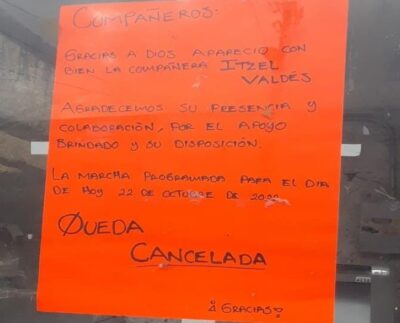 COMPAÑEROS.
GRACIAS A DIOS APARECIO CON
BIEN LA COMPAÑERA ITZEL
VALDÉS
AGRADECEMOS SU PRESENCIA Y
COLABORACIÓN, POR EL APOYO
BRINDADO Y SU DISPOSICIÓN.
LA MARCHA PROGRAMADA PARA EL DIA
DE HOY 22 DE OCTUBRE DE
QUEDA
CANCELADA
¡GRACIAS!